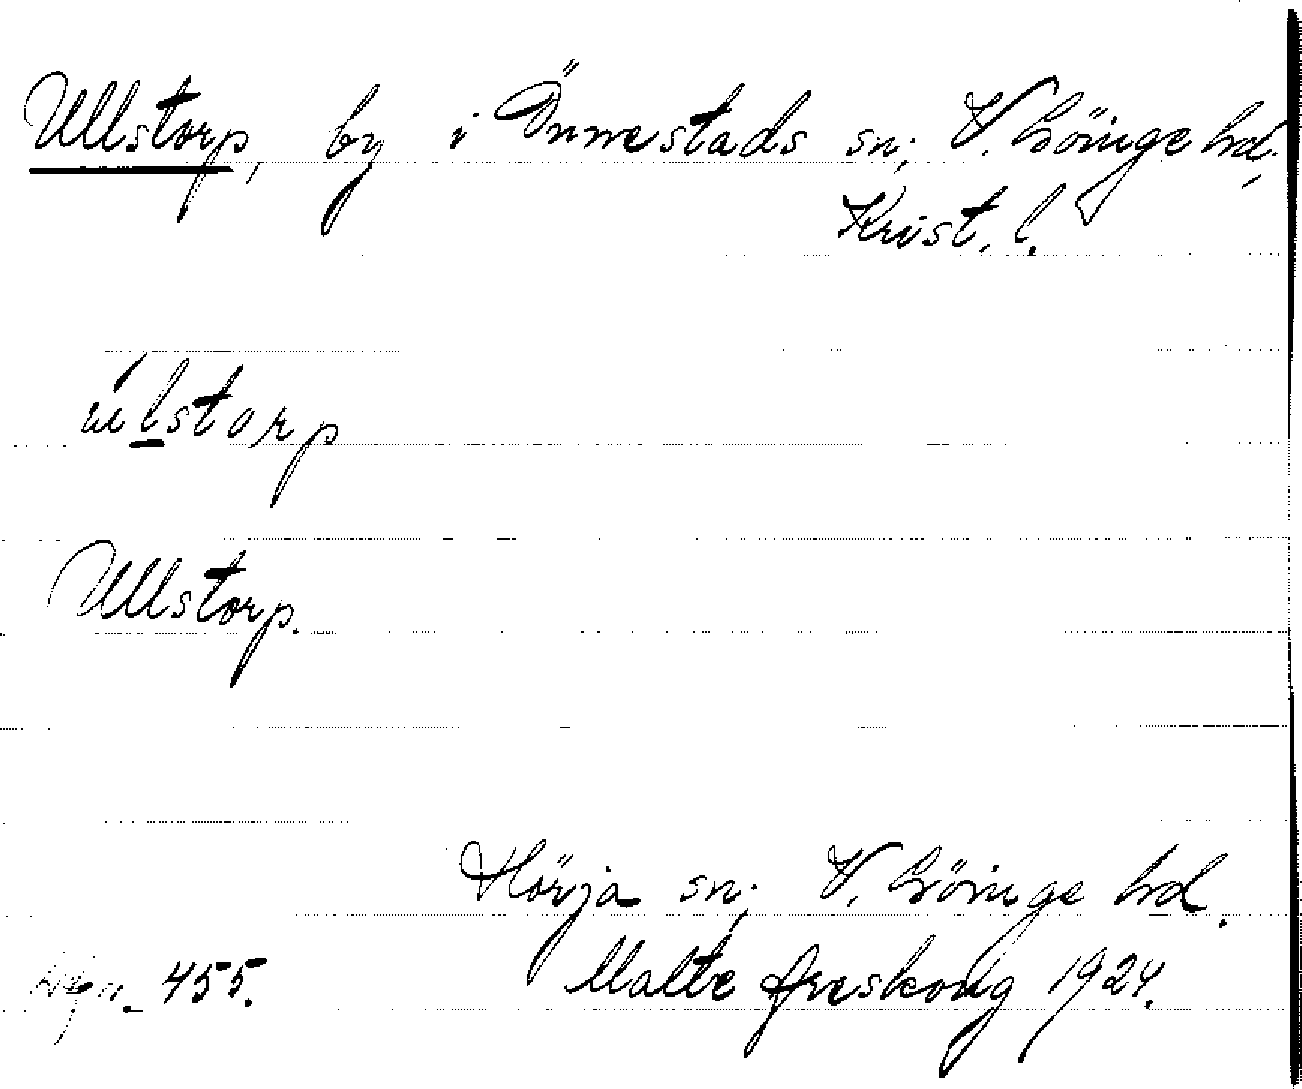 Ullstorp, by i Önnestads sn; V. Göinge hd,
Krist. l.
úlstorp
Ullstorp.
Hörja sn; V. Göinge hd.
455. Malte Areskoug 1924.